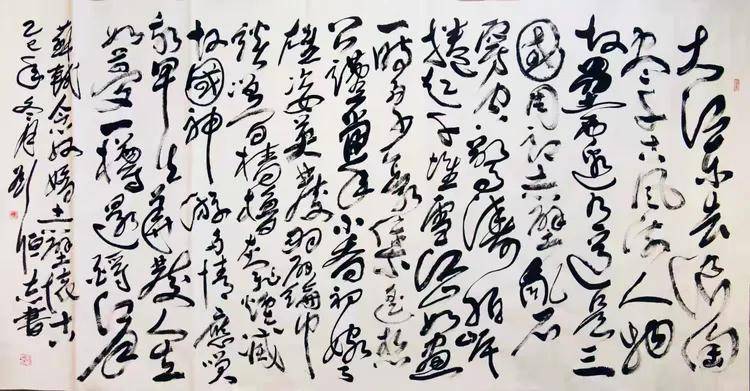 大江东去浪淘
尽千古风流人物
故垒西边人道是三
國周郎赤壁乱石
穿空惊涛拍岸
捲起千堆雪江山如画
一时多少豪杰遥想
公瑾当年小乔初嫁了
雄姿英发羽扇纶巾
谈笑间樯橹灰飞烟灭
故國神游多情應笑
我早生华发人生
如梦一樽还酹江月
苏轼念奴娇赤壁怀古
乙巳年冬月刘恒志书